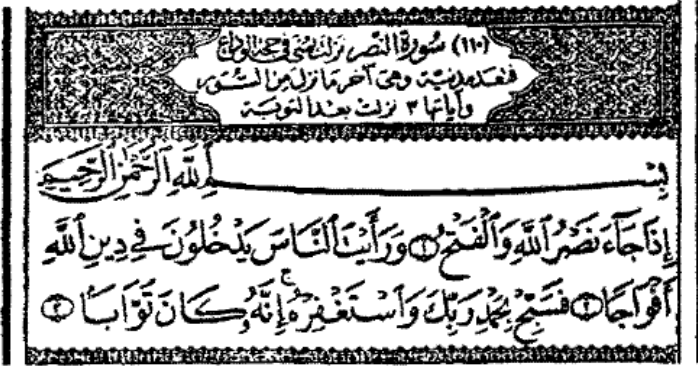 (١١٠) سُورَةُ النَّصْرِ نَزَلَتْ بِمِنًى فِي حَجَّةِ الوَدَاع
فتعد مدنية وهي آخر ما نزل من السور
وآياتها ٣ نزلت بعد التوبة
بِسْمِ اللَّهِ الرَّحْمَٰنِ الرَّحِيمِ
إِذَا جَآءَ نَصْرُ ٱللَّهِ وَٱلْفَتْحُ ١ وَرَأَيْتَ ٱلنَّاسَ يَدْخُلُونَ فِى دِينِ ٱللَّهِ
أَفْوَاجًا ٢ فَسَبِّحْ بِحَمْدِ رَبِّكَ وَٱسْتَغْفِرْهُ ۚ إِنَّهُۥ كَانَ تَوَّابًۢا ٣